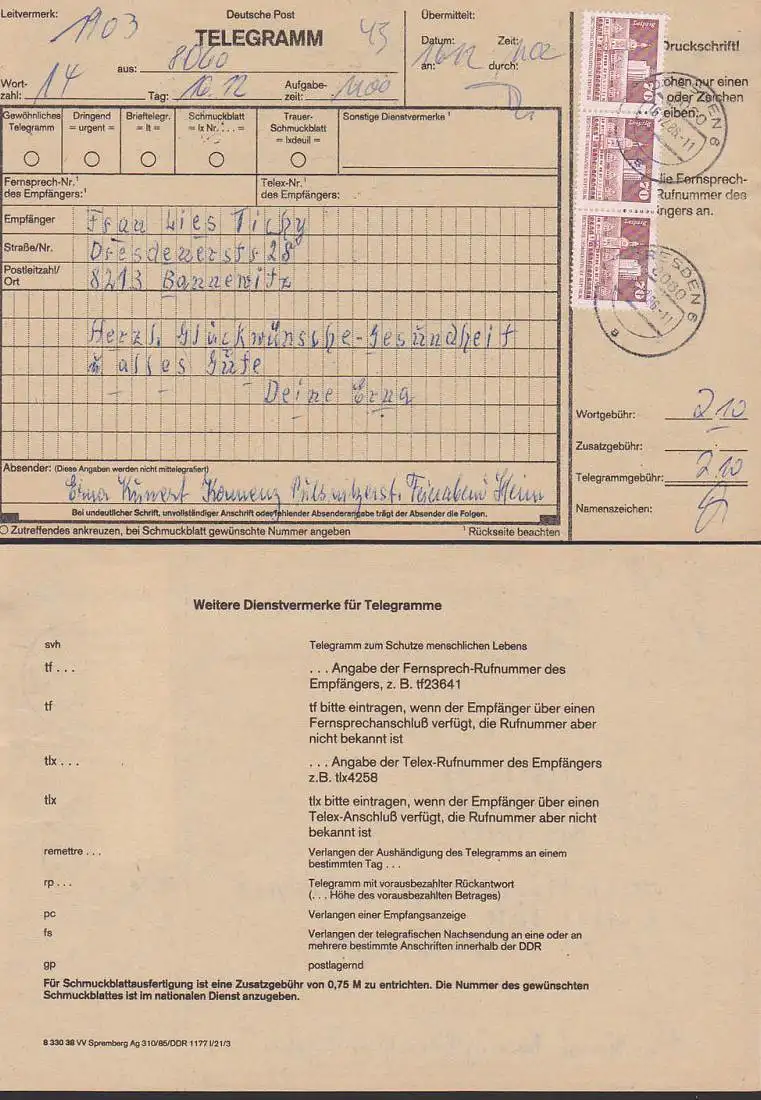 Leitvermerk: 1903
Deutsche Post
TELEGRAMM
43
Übermittelt:
aus: 8060
Datum: Zeit:
an: 16.12 durch:
Wort-
zahl: 14
Tag: 16.12
Aufgabe-
zeit: 1100
Druckschrift!
ohen nur einen
oder Zeichen
eiben:
die Fernsprech-
Rufnummer des
ngers an.
Gewöhnliches
Telegramm
Dringend
= urgent =
Brieftelegr.
= lt =
Schmuckblatt
= lx Nr. . . . =
Trauer-
Schmuckblatt
= lxdeuil =
Sonstige Dienstvermerke ¹
Fernsprech-Nr.¹
des Empfängers:¹
Telex-Nr.¹
des Empfängers:
Empfänger Frau Lies Tichy
Straße/Nr. Dresdenerstr 28
Postleitzahl/
Ort 8213 Bannewitz
Herzl. Glückwünsche-Gesundheit
u alles Gute
Deine Erna
Absender: (Diese Angaben werden nicht mittelegrafiert)
Erna Kunert Kamenz Pulsnitzerst. Feierabend Heim
Bei undeutlicher Schrift, unvollständiger Anschrift oder fehlender Absenderangabe trägt der Absender die Folgen.
Zutreffendes ankreuzen, bei Schmuckblatt gewünschte Nummer angeben
¹ Rückseite beachten
DRESDEN 6
8060
DRESDEN 6
8060
Wortgebühr: 2 10
Zusatzgebühr:
Telegrammgebühr: 2.10
Namenszeichen:
Weitere Dienstvermerke für Telegramme
svh Telegramm zum Schutze menschlichen Lebens
tf . . . . . . Angabe der Fernsprech-Rufnummer des
Empfängers, z. B. tf23641
tf tf bitte eintragen, wenn der Empfänger über einen
Fernsprechanschluß verfügt, die Rufnummer aber
nicht bekannt ist
tlx . . . . . . Angabe der Telex-Rufnummer des Empfängers
z.B. tlx4258
tlx tlx bitte eintragen, wenn der Empfänger über einen
Telex-Anschluß verfügt, die Rufnummer aber nicht
bekannt ist
remettre . . . Verlangen der Aushändigung des Telegramms an einem
bestimmten Tag . . .
rp . . . Telegramm mit vorausbezahlter Rückantwort
(. . . Höhe des vorausbezahlten Betrages)
pc Verlangen einer Empfangsanzeige
fs Verlangen der telegrafischen Nachsendung an eine oder an
mehrere bestimmte Anschriften innerhalb der DDR
gp postlagernd
Für Schmuckblattausfertigung ist eine Zusatzgebühr von 0,75 M zu entrichten. Die Nummer des gewünschten
Schmuckblattes ist im nationalen Dienst anzugeben.
8 330 38 VV Spremberg Ag 310/85/DDR 1177 I/21/3